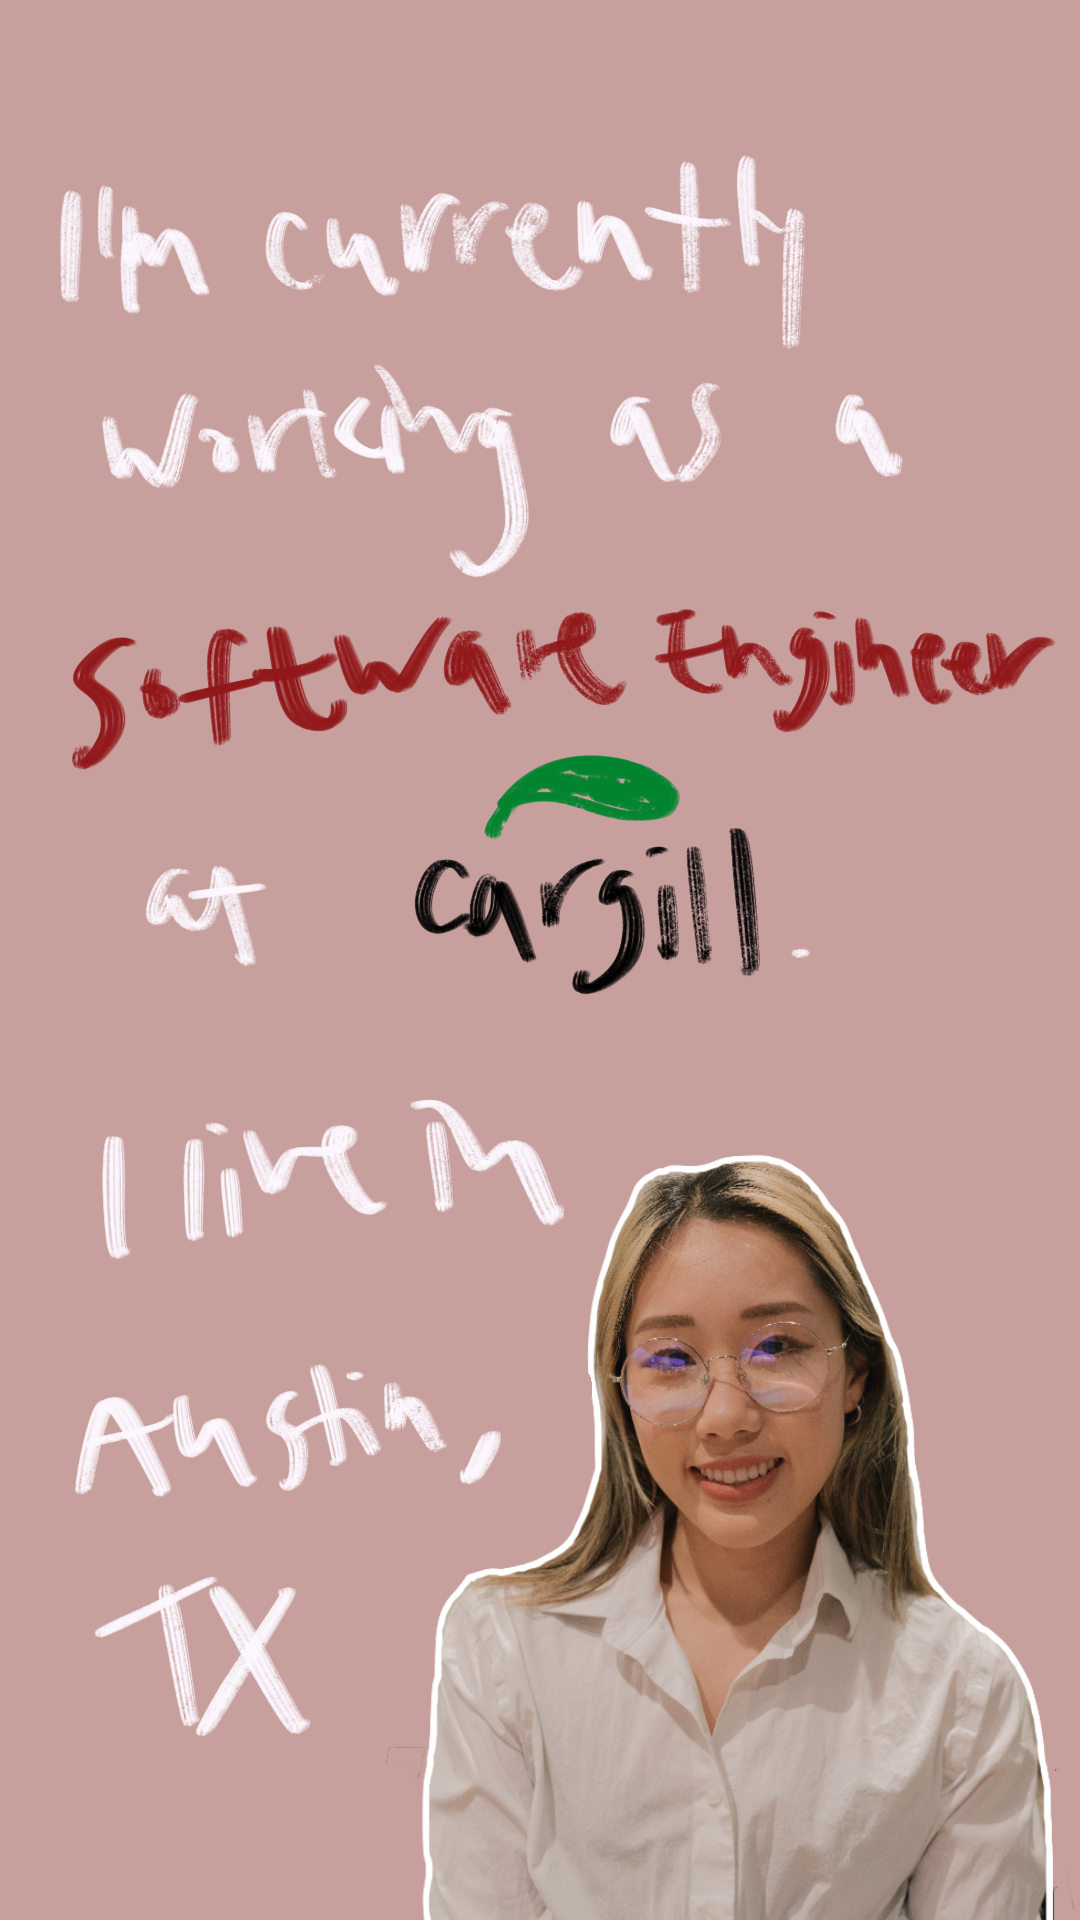 I'm currently
working as a
Software Engineer
at cargill.
I live in
Austin,
TX